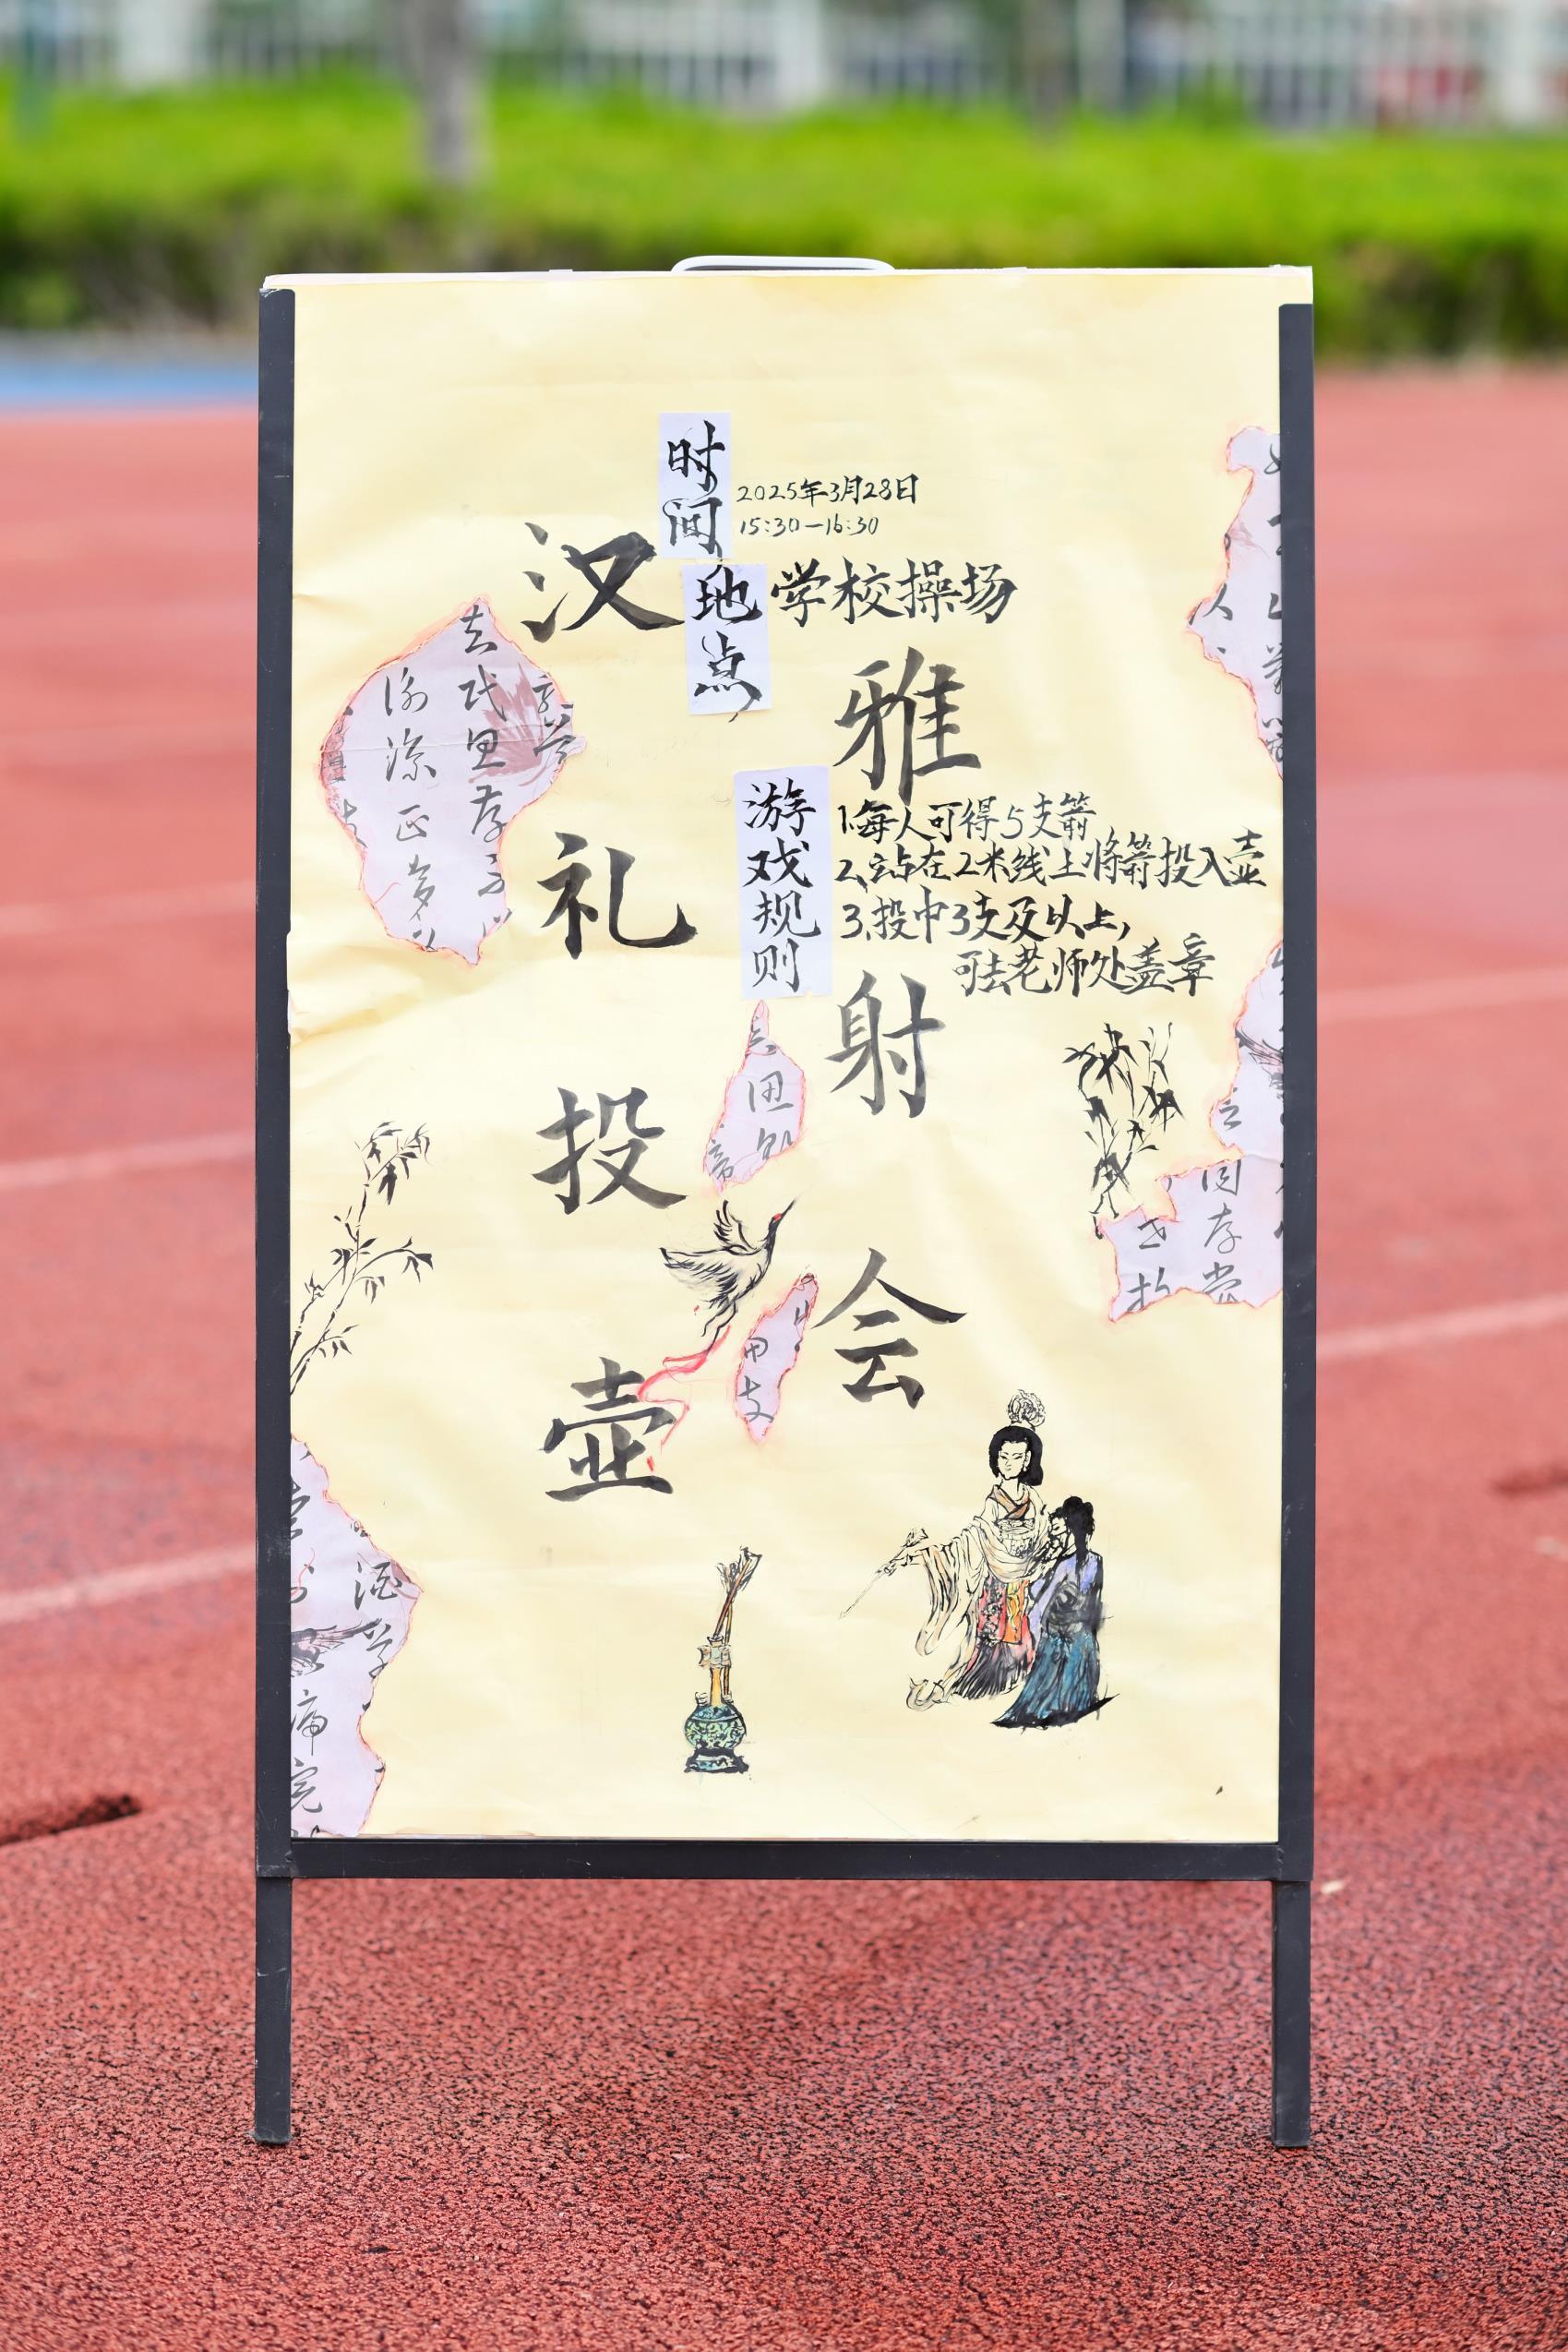 时间
2025年3月28日
15:30—16:30
地点
学校操场
汉礼投壶
雅射会
游戏规则
1.每人可得5支箭
2、站在2米线上将箭投入壶
3、投中3支及以上,
可去老师处盖章